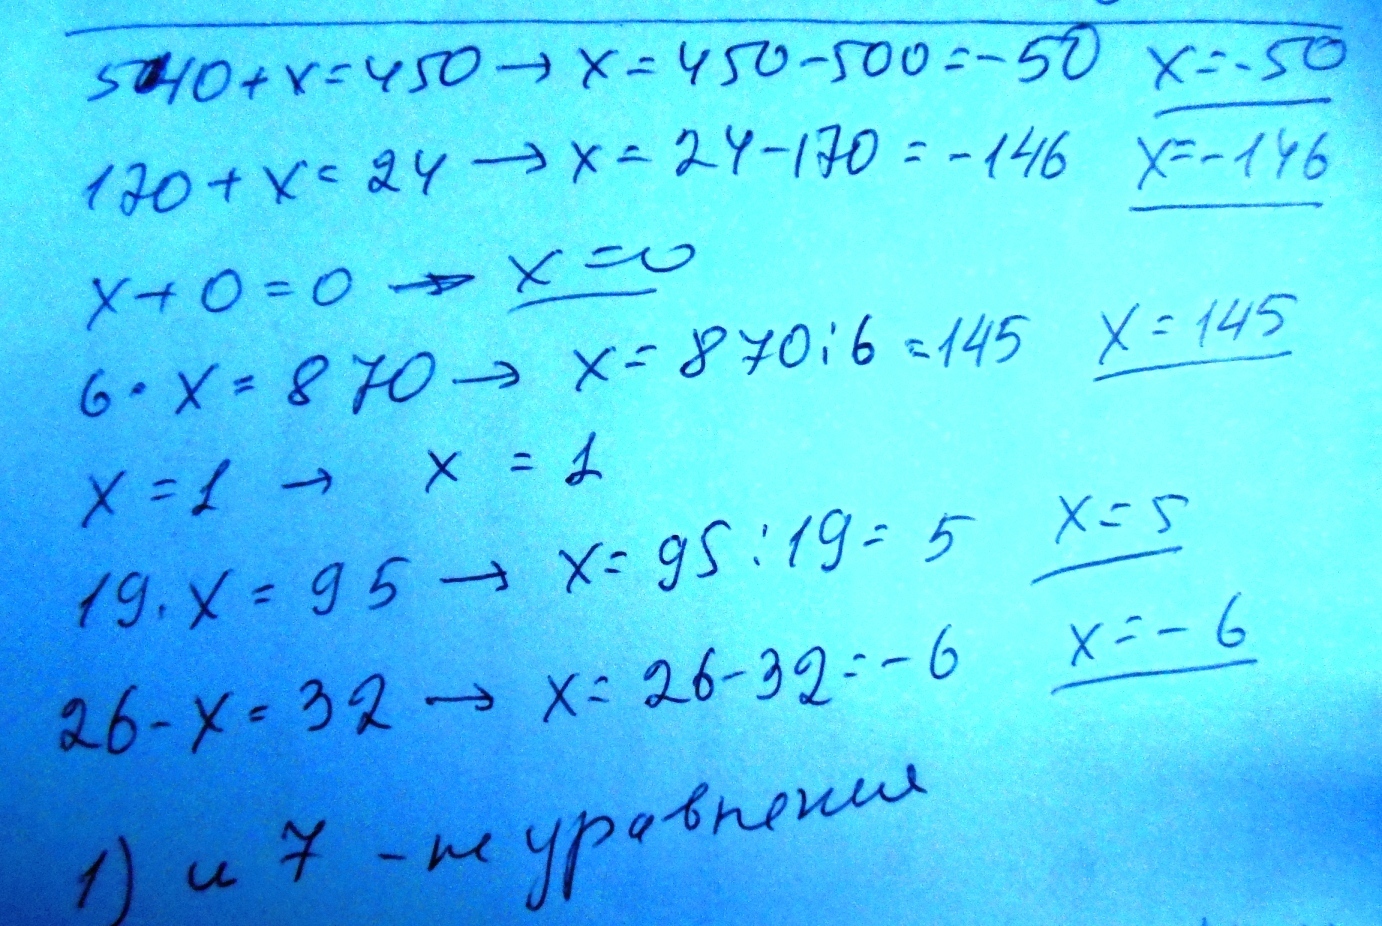 540+x=450→x=450-500=-50 x=-50
170+x=24→x=24-170=-146 x=-146
x+0=0→x=0
6·x=870→x=870:6=145 x=145
x=1→x=1
19·x=95→x=95:19=5 x=5
26-x=32→x=26-32=-6 x=-6
1) и 7 - не уравнения